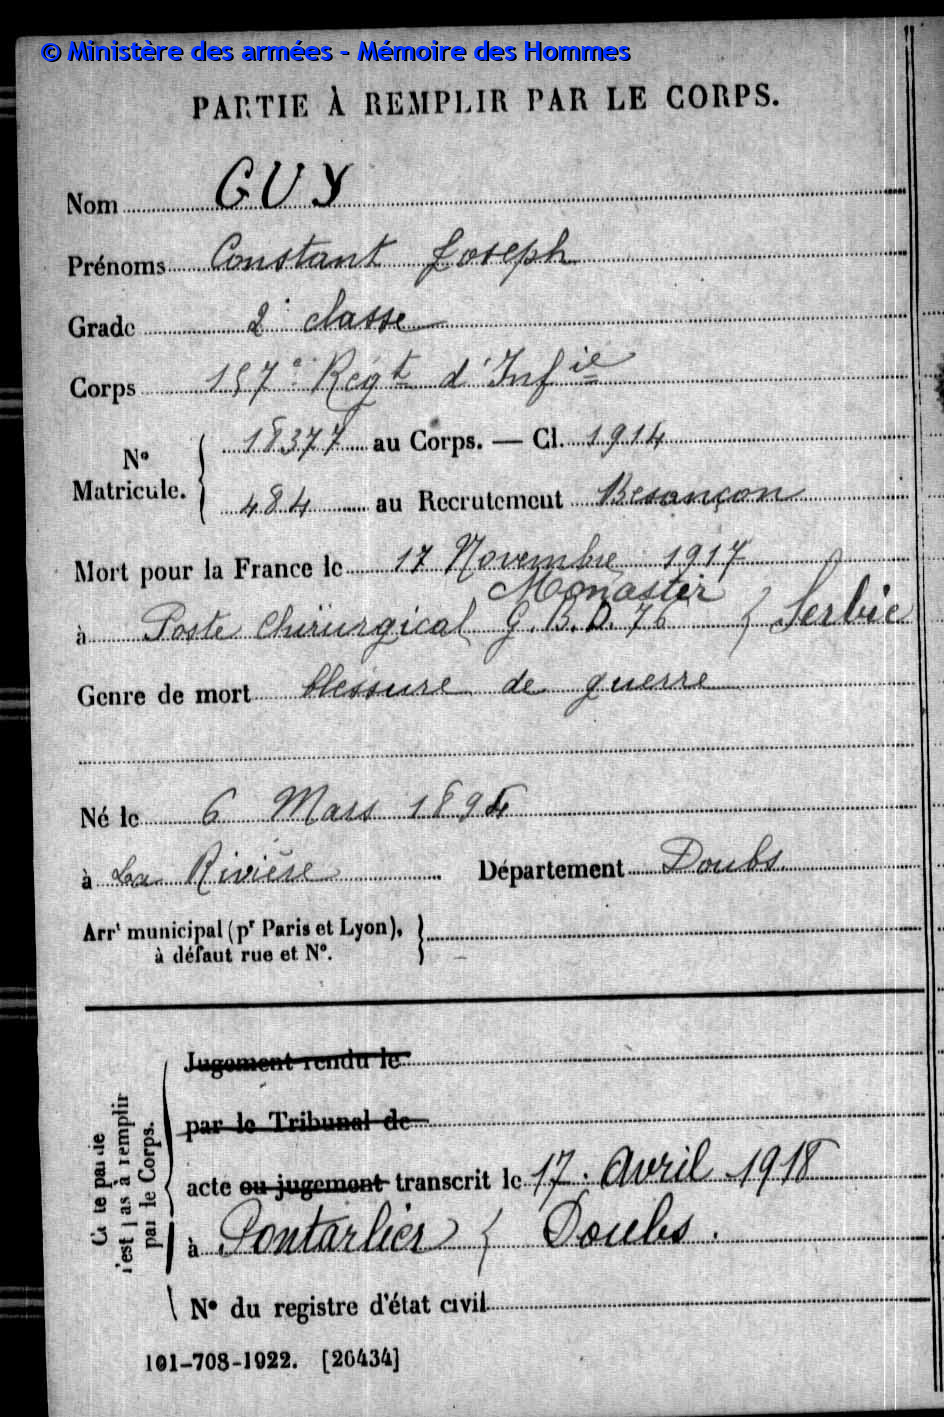 © Ministère des armées - Mémoire des Hommes
PARTIE À REMPLIR PAR LE CORPS.
Nom GUY
Prénoms Constant Joseph
Grade 2e classe
Corps 157e Regt d'Infie
N° Matricule. { 18377 au Corps. — Cl. 1914
484 au Recrutement Besançon
Mort pour la France le 17 Novembre 1917
Monastir
à Poste Chirurgical G.B.D. 76 } Serbie
Genre de mort blessure de guerre
Né le 6 Mars 1894
à La Rivière Département Doubs
Arrt municipal (pr Paris et Lyon), }
à défaut rue et N°.
Jugement rendu le
par le Tribunal de
acte ou jugement transcrit le 17 Avril 1918
à Pontarlier { Doubs.
N° du registre d'état civil
Cette partie
n'est pas à remplir
par le Corps.
101-708-1922. [26434]